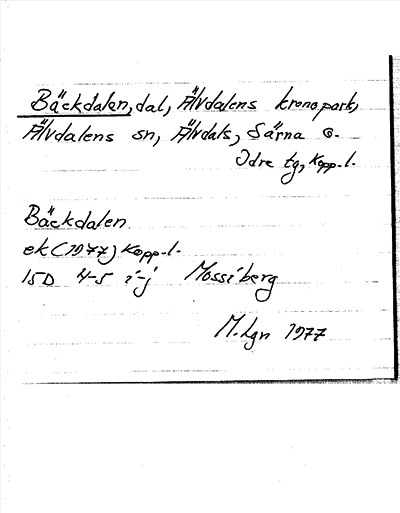 Bäckdalen, dal, Älvdalens kronopark,
Älvdalens sn, Älvdals, Särna o.
Idre tg, Kopp. l.
Bäckdalen
ek (1977) Kopp. l.
15D 4-5 i-j Mossiberg
M. Lgn 1977